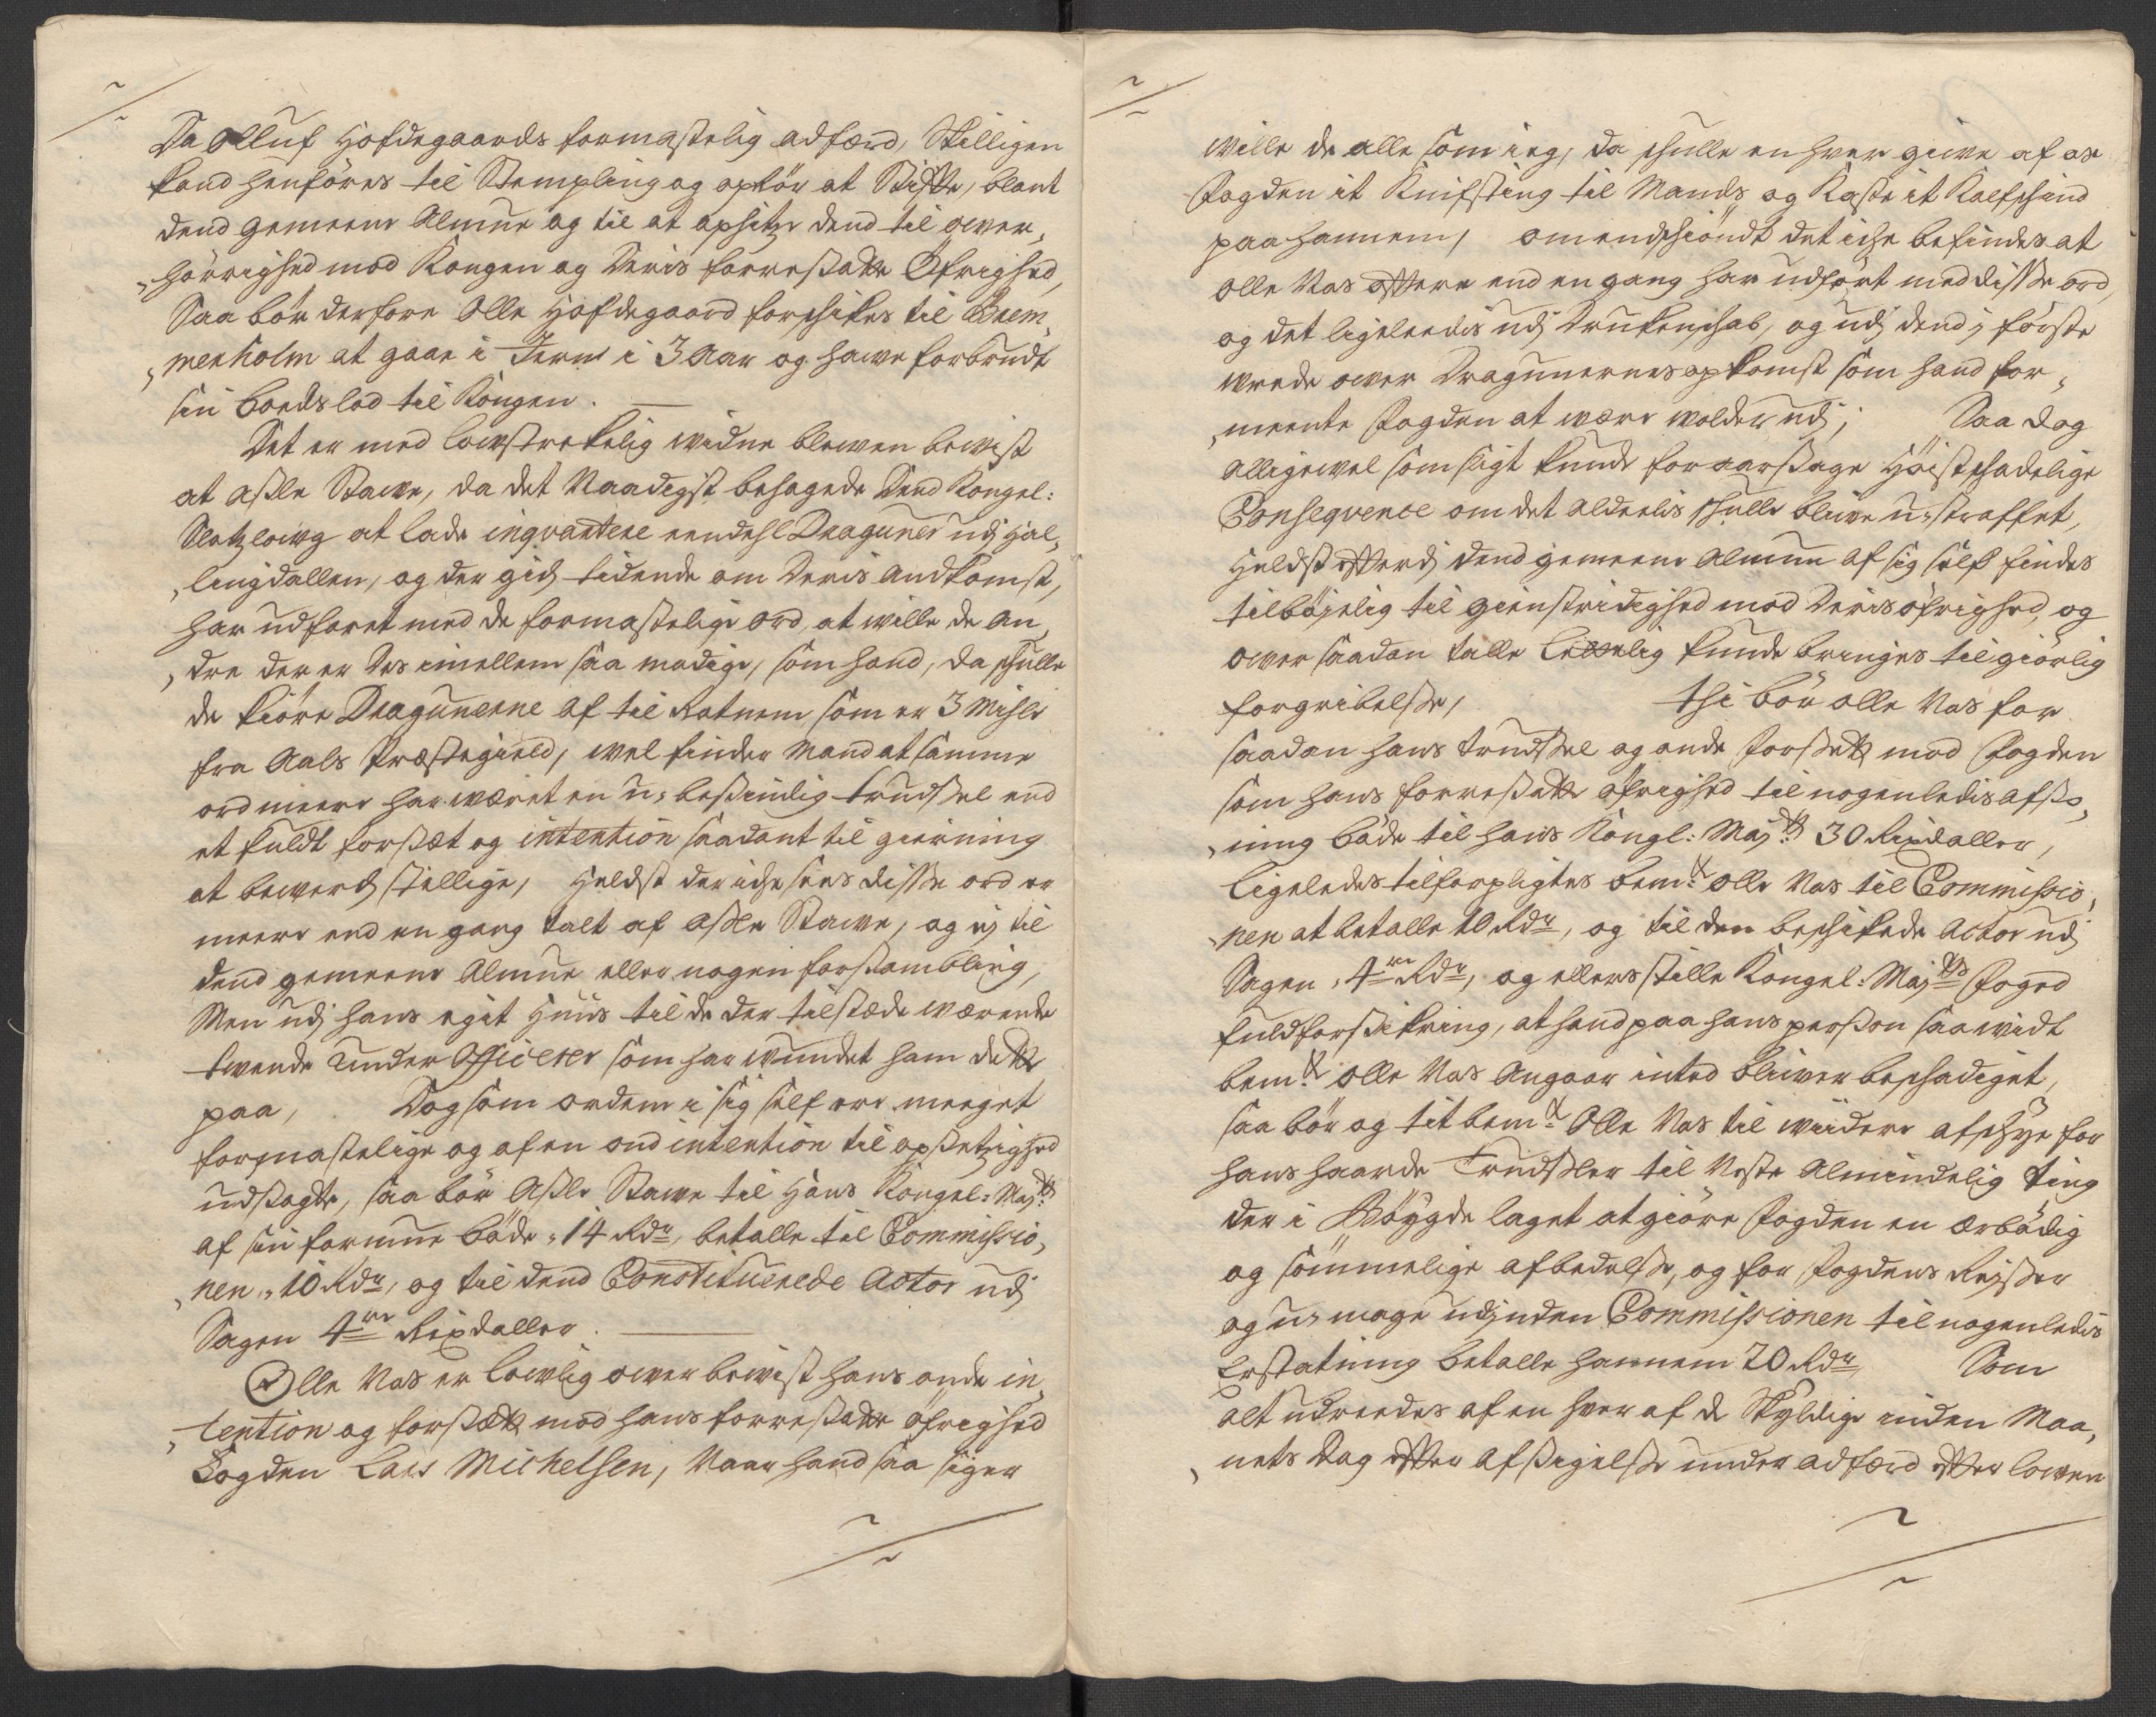 Da Olluf Hofdegaards formastelig adfærd, Skilligen
kand henføres til Stempling og opkör at Stifte, blant
dend gemeene Almue og til at opsitze dend til ower„
„hörrighed mod Kongen og Deris forresatte Öfrighed,
Saa bör derfore Olle Hofdegaard forschikes til Brem„
„merholm at gaae i Jern i 3 Aar og hawe forbrudt
sin boedslod til Kongen.
Det er med lowstrekelig widne blewen bewist
at Aslle Stawe, da det Naadigst behagede Dend Kongel:
Slotzlowg at lade inqvartere eendehl Dragoner udj Hal„
„lingdallen, og der gich tidende om Deris Andkomst,
har udfaret med de formastelige ord, at wille de An„
„dre der er Des imellem saa modige, som hand, da schulle
de kiöre Dragunerne af til Rotnem som er 3 Mihle
fra Aals Præstegield, wel finder Mand at samme
ord meere har wæret en u-besindig trudsel end
et fuldt forsæt og intention saadant til gierning
at bewerchstellige, Heldst der iche sees disse ord er
meere end en gang talt af Aslle Stawe, og ej til
dend gemeene Almue eller nogen forsambling,
Men udj hans eget Huus til de der tilstæde wærende
twende Under Officerer som har wundet ham dette
paa, Dog som ordene i sig self ere meeget
formastelige og af en ond intention til opsetzighed
udsagde, saa bör Aslle Stawe til Hans Kongel: Maytt:
af sin formue böde „14 Rdr, betalle til Commissio„
„nen „10 Rdr, og til dend Constituerede Actor udj
Sagen 4re Rixdaller.
Olle Nas er lowlig ower bewist hans onde in„
„tention og forsætt mod hans forresatte öfrighed
Fogden Lars Michelsen, Naar hand saa siger
wille de alle som ieg, da schulle en hwer giwe af os
Fogden it Knifsting til Mands og Kaste it Kalfschind
paa hannem, omendschiöndt det iche befindes at
Olle Nas oftere end en gang har udfört med disse ord,
og det ligeleedis udj Druckenschab, og udj dend förste
wrede ower Dragunernes opkomst som hand for„
„meente Fogden at være wolder udj; Saa dog
alligewel som sligt kunde foraarsage Höist schadelige
Conseqvence om det aldeelis schulle bliwe u-straffet,
Heldst efterdj dend gemeene Almue af sig self findes
tilböjelig til gienstridighed mod Deris öfrighed, og
ower saadan talle lettelig kunde bringes til giörlig
forgribelse, thi bör Olle Nas for
saadan hans trudsel og onde forsett mod Fogden
som hans forresatte öfrighed til nogenledis afso„
„ning böde til hans Kongl: Maytt: 30 Rixdaller,
ligeledes tilforpligtes bemte Olle Nas til Commissio„
„nen at betalle 10 Rdr, og til den beschikede Actor udj
Sagen „4re Rdr, og ellers stille Kongel: Mayts Foged
fuldforsikring, at hand paa hans person saa widt
bemte Olle Nas Angaar inted bliwer beschadiget,
saa bör og titbemte Olle Nas til wiidere afschye for
hans haarde Trudsler til Neste Almindelig Ting
der i Böygde laget at giöre Fogden en ærbödig
og sömmelige afbedelse, og for Fogdens Reyser
og u-mage udj inden Commissionen til nogenledis
Erstatning betalle hannem 20 Rdr, Som
alt udreedes af en hwer af de Skyldige inden Maa„
„nets Dag efter afsigelse under adfærd efter lowen